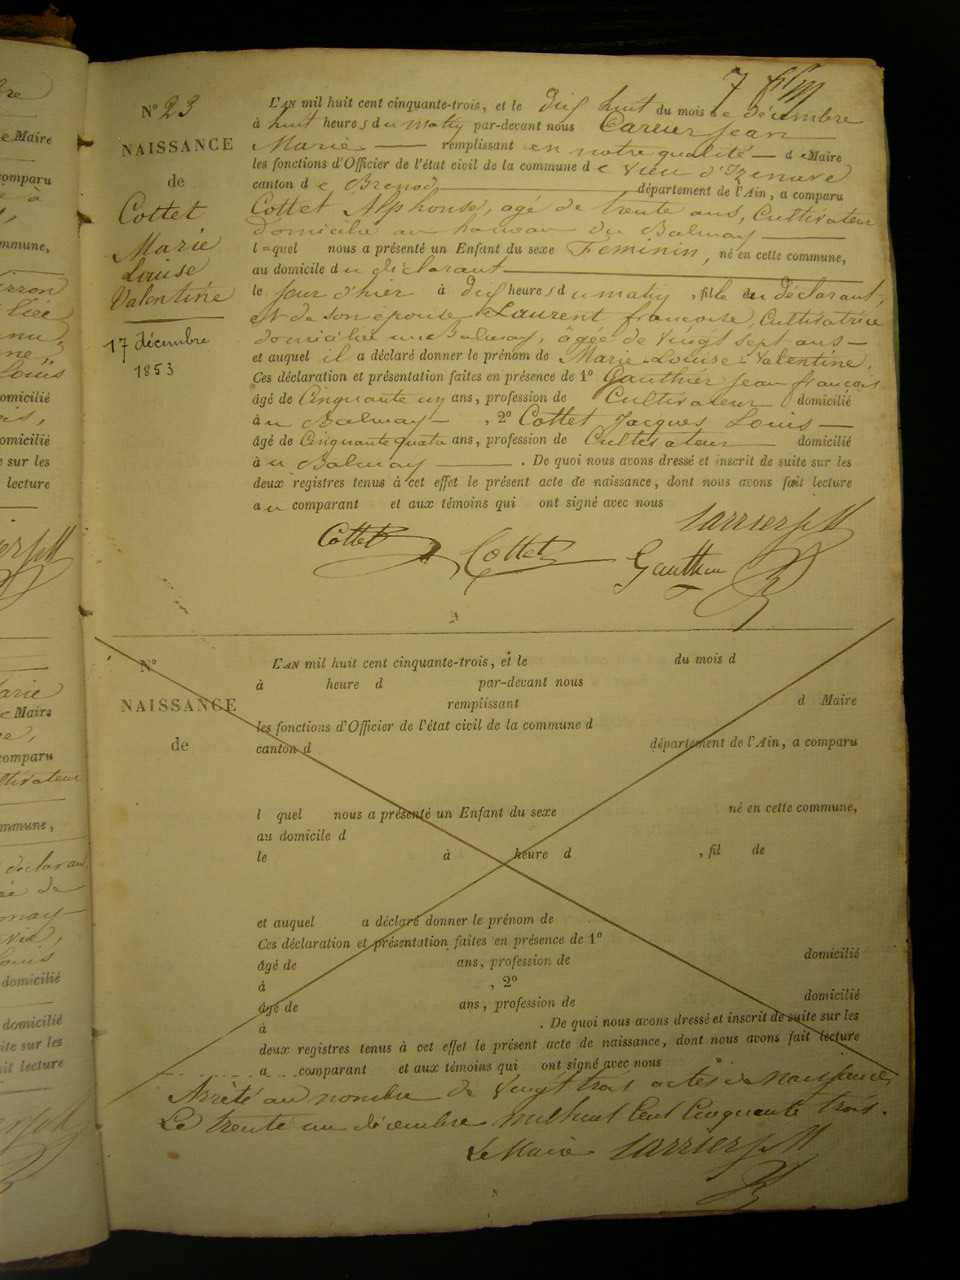 7
N° 23
NAISSANCE
de
Cottet
Marie
Louise
Valentine
17 décembre
1853
L'AN mil huit cent cinquante-trois, et le dix huit du mois de décembre
à huit heures du matin par-devant nous Carrier Jean
Marie — remplissant en notre qualité — de Maire
les fonctions d'Officier de l'état civil de la commune de Vieu d'Izenave
canton de Brenod département de l'Ain, a comparu
Cottet Alphonse, agé de trente ans, Cultivateur
domicilié au hameau du Balmay
lequel nous a présenté un Enfant du sexe Féminin, né en cette commune,
au domicile du déclarant
le jour d'hier à dix heures du matin, fille du déclarant,
et de son épouse Laurent françoise, Cultivatrice
domiciliée au Balmay, âgée de vingt sept ans —
et auquel il a déclaré donner le prénom de Marie Louise Valentine.
Ces déclaration et présentation faites en présence de 1° Gauthier Jean françois
âgé de Cinquante un ans, profession de Cultivateur domicilié
àu Balmay —, 2° Cottet Jacques Louis —
âgé de Cinquante quatre ans, profession de Cultivateur domicilié
àu Balmay —. De quoi nous avons dressé et inscrit de suite sur les
deux registres tenus à cet effet le présent acte de naissance, dont nous avons fait lecture
au comparant et aux témoins qui ont signé avec nous
Carrier J M
Cottet Cottet Gauthier
N°
NAISSANCE
de
L'AN mil huit cent cinquante-trois, et le du mois d
à heure d par-devant nous
remplissant d Maire
les fonctions d'Officier de l'état civil de la commune d
canton d département de l'Ain, a comparu
l quel nous a présenté un Enfant du sexe né en cette commune,
au domicile d
le à heure d , fil de
et auquel a déclaré donner le prénom de
Ces déclaration et présentation faites en présence de 1°
âgé de ans, profession de domicilié
à , 2°
âgé de ans, profession de domicilié
à . De quoi nous avons dressé et inscrit de suite sur les
deux registres tenus à cet effet le présent acte de naissance, dont nous avons fait lecture
a comparant et aux témoins qui ont signé avec nous
Arrêté au nombre de vingt trois actes de Naissances
Le trente un décembre mil huit Cent Cinquante trois.
Le Maire Carrier J M